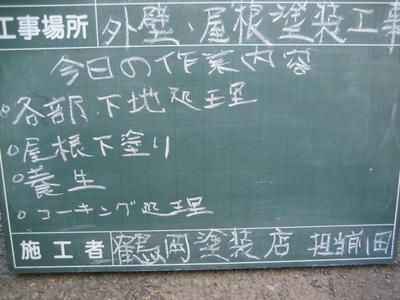 工事場所 外壁、屋根塗装工事
今日の作業内容
○各部下地処理
○屋根下塗り
○養生
○コーキング処理
施工者 鶴岡塗装店 担当前田